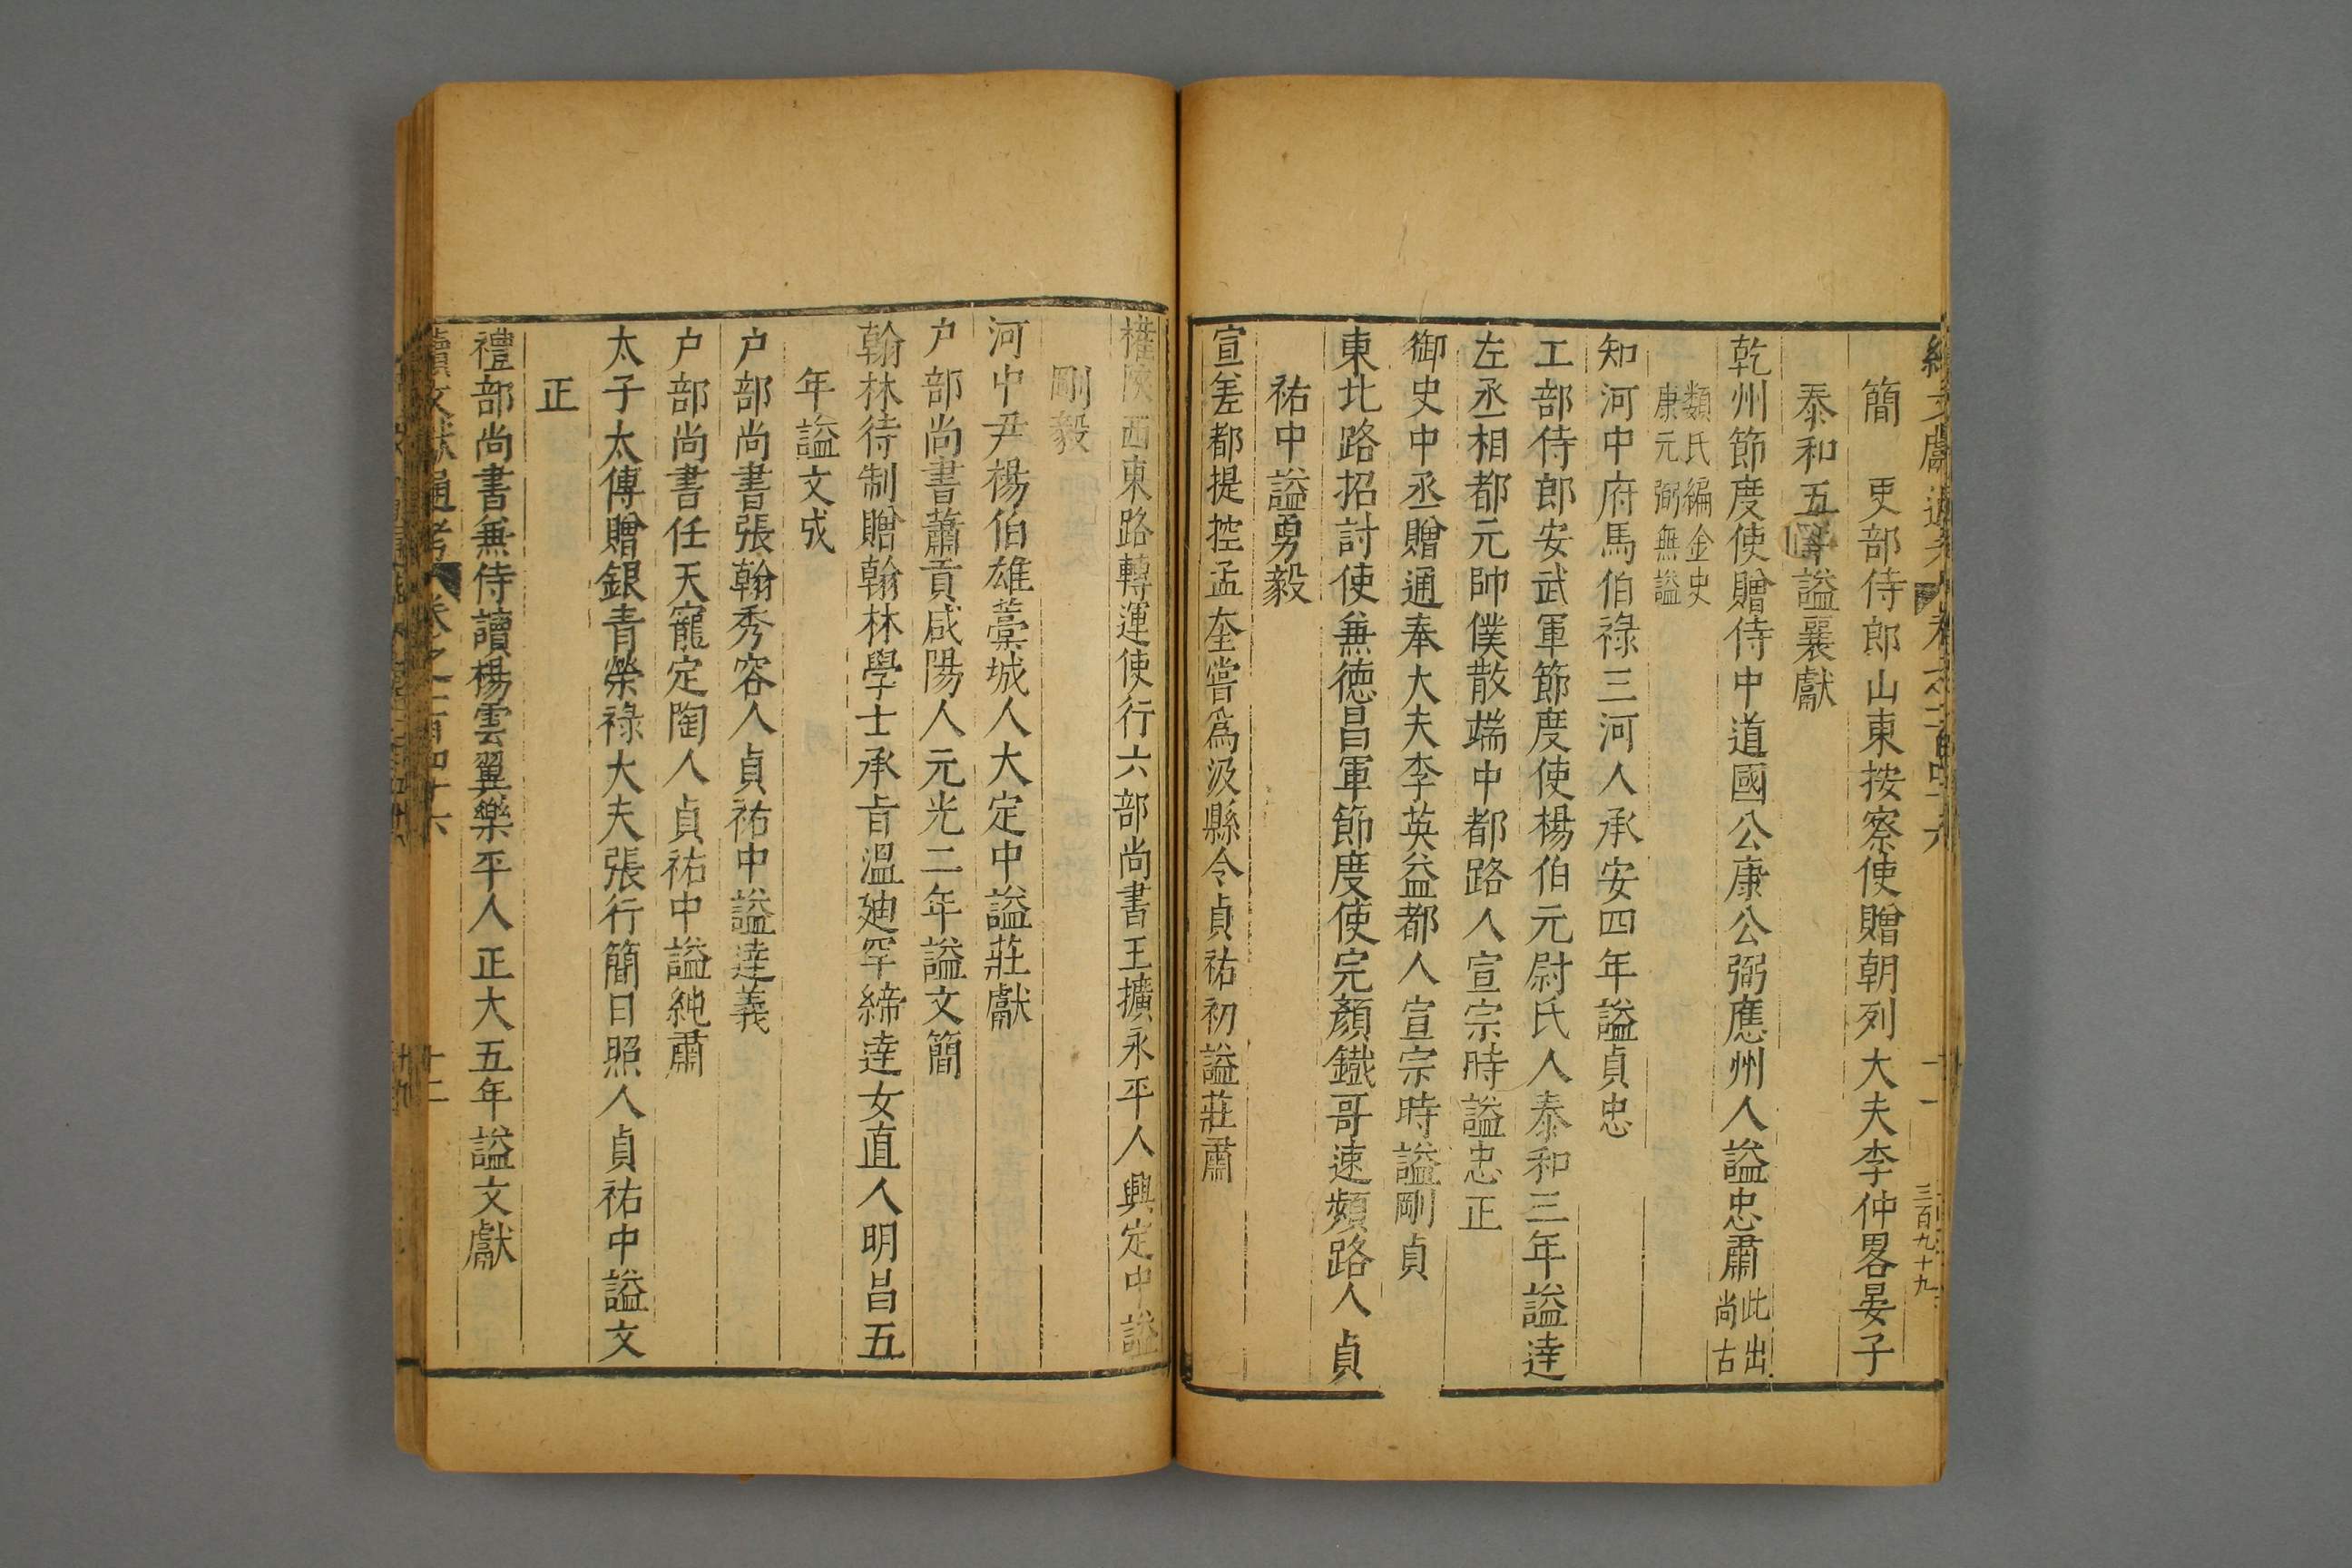 簡 吏部侍郎山東按察使贈朝列大夫李仲畧晏子
泰和五年謚襄獻
乾州節度使贈侍中道國公康公弼應州人謚忠肅此出尚古
類氏編金史康元弼無謚
知河中府馬伯祿三河人承安四年謚貞忠
工部侍郎安武軍節度使楊伯元尉氏人泰和三年謚達
左丞相都元帥僕散端中都路人宣宗時謚忠正
御史中丞贈通奉大夫李英益都人宣宗時謚剛貞
東北路招討使兼德昌軍節度使完顏鐵哥速頻路人貞
祐中謚勇毅
宣差都提控孟奎嘗爲汲縣令貞祐初謚莊肅
權陝西東路轉運使行六部尚書王擴永平人興定中謚
剛毅
河中尹楊伯雄藁城人大定中謚莊獻
户部尚書蕭貢咸陽人元光二年謚文簡
翰林待制贈翰林學士承旨溫廸罕締達女直人明昌五
年謚文成
户部尚書張翰秀容人貞祐中謚達義
户部尚書任天寵定陶人貞祐中謚純肅
太子太傅贈銀青榮祿大夫張行簡日照人貞祐中謚文
正
禮部尚書兼侍讀楊雲翼樂平人正大五年謚文獻
續文獻通考 卷之一百四十六 十二